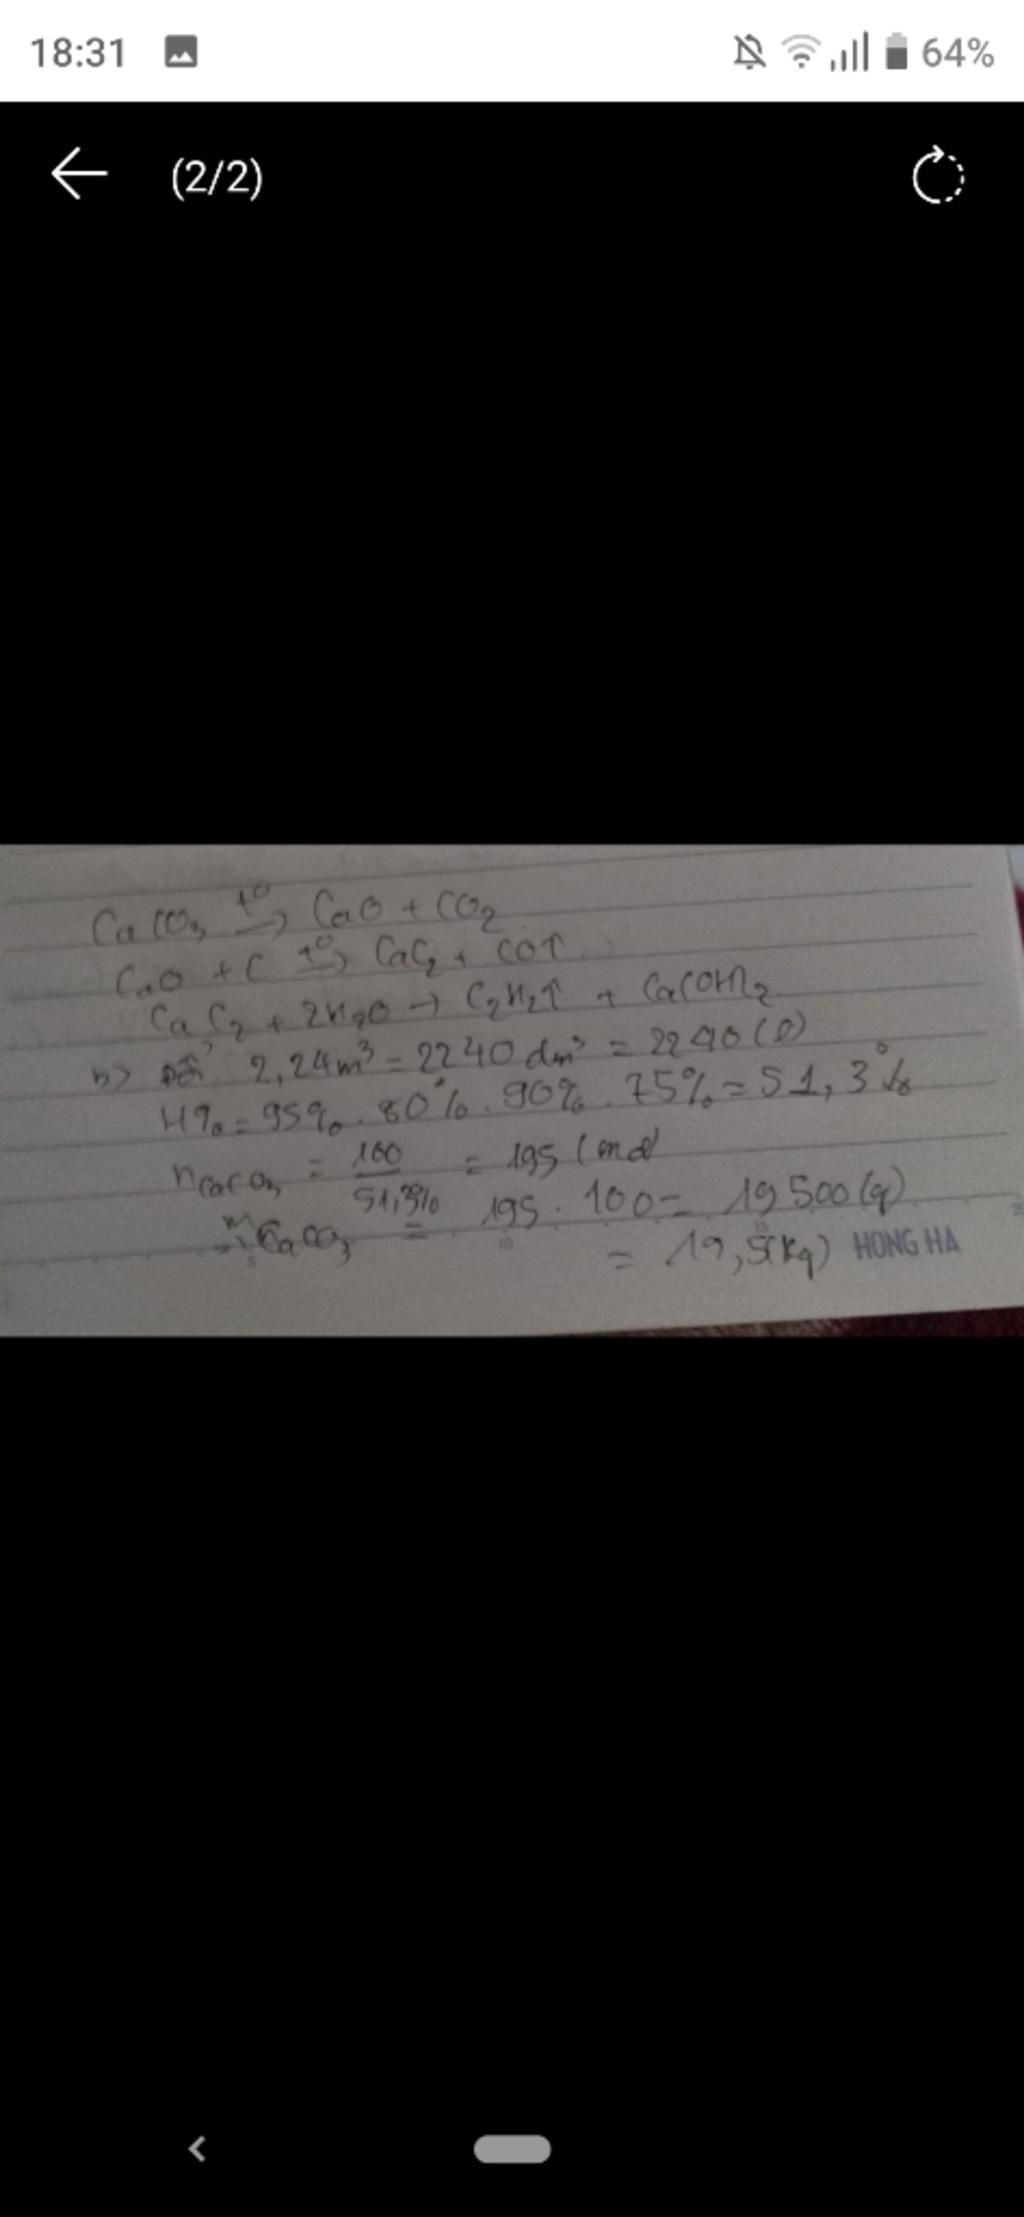 18:31 64%
(2/2)
CaCO3 t° → CaO + CO2
CaO + C t° → CaC2 + CO↑
CaC2 + 2H2O → C2H2↑ + Ca(OH)2
b> Đổi 2,24m³ = 2240 dm³ = 2240 (l)
H% = 95%. 80%. 90%. 75% = 51,3%
nCaCO3 = 100 / 51,3% = 195 (mol
=> mCaCO3 = 195. 100 = 19500 (g)
= 19,5(kg) HONG HA